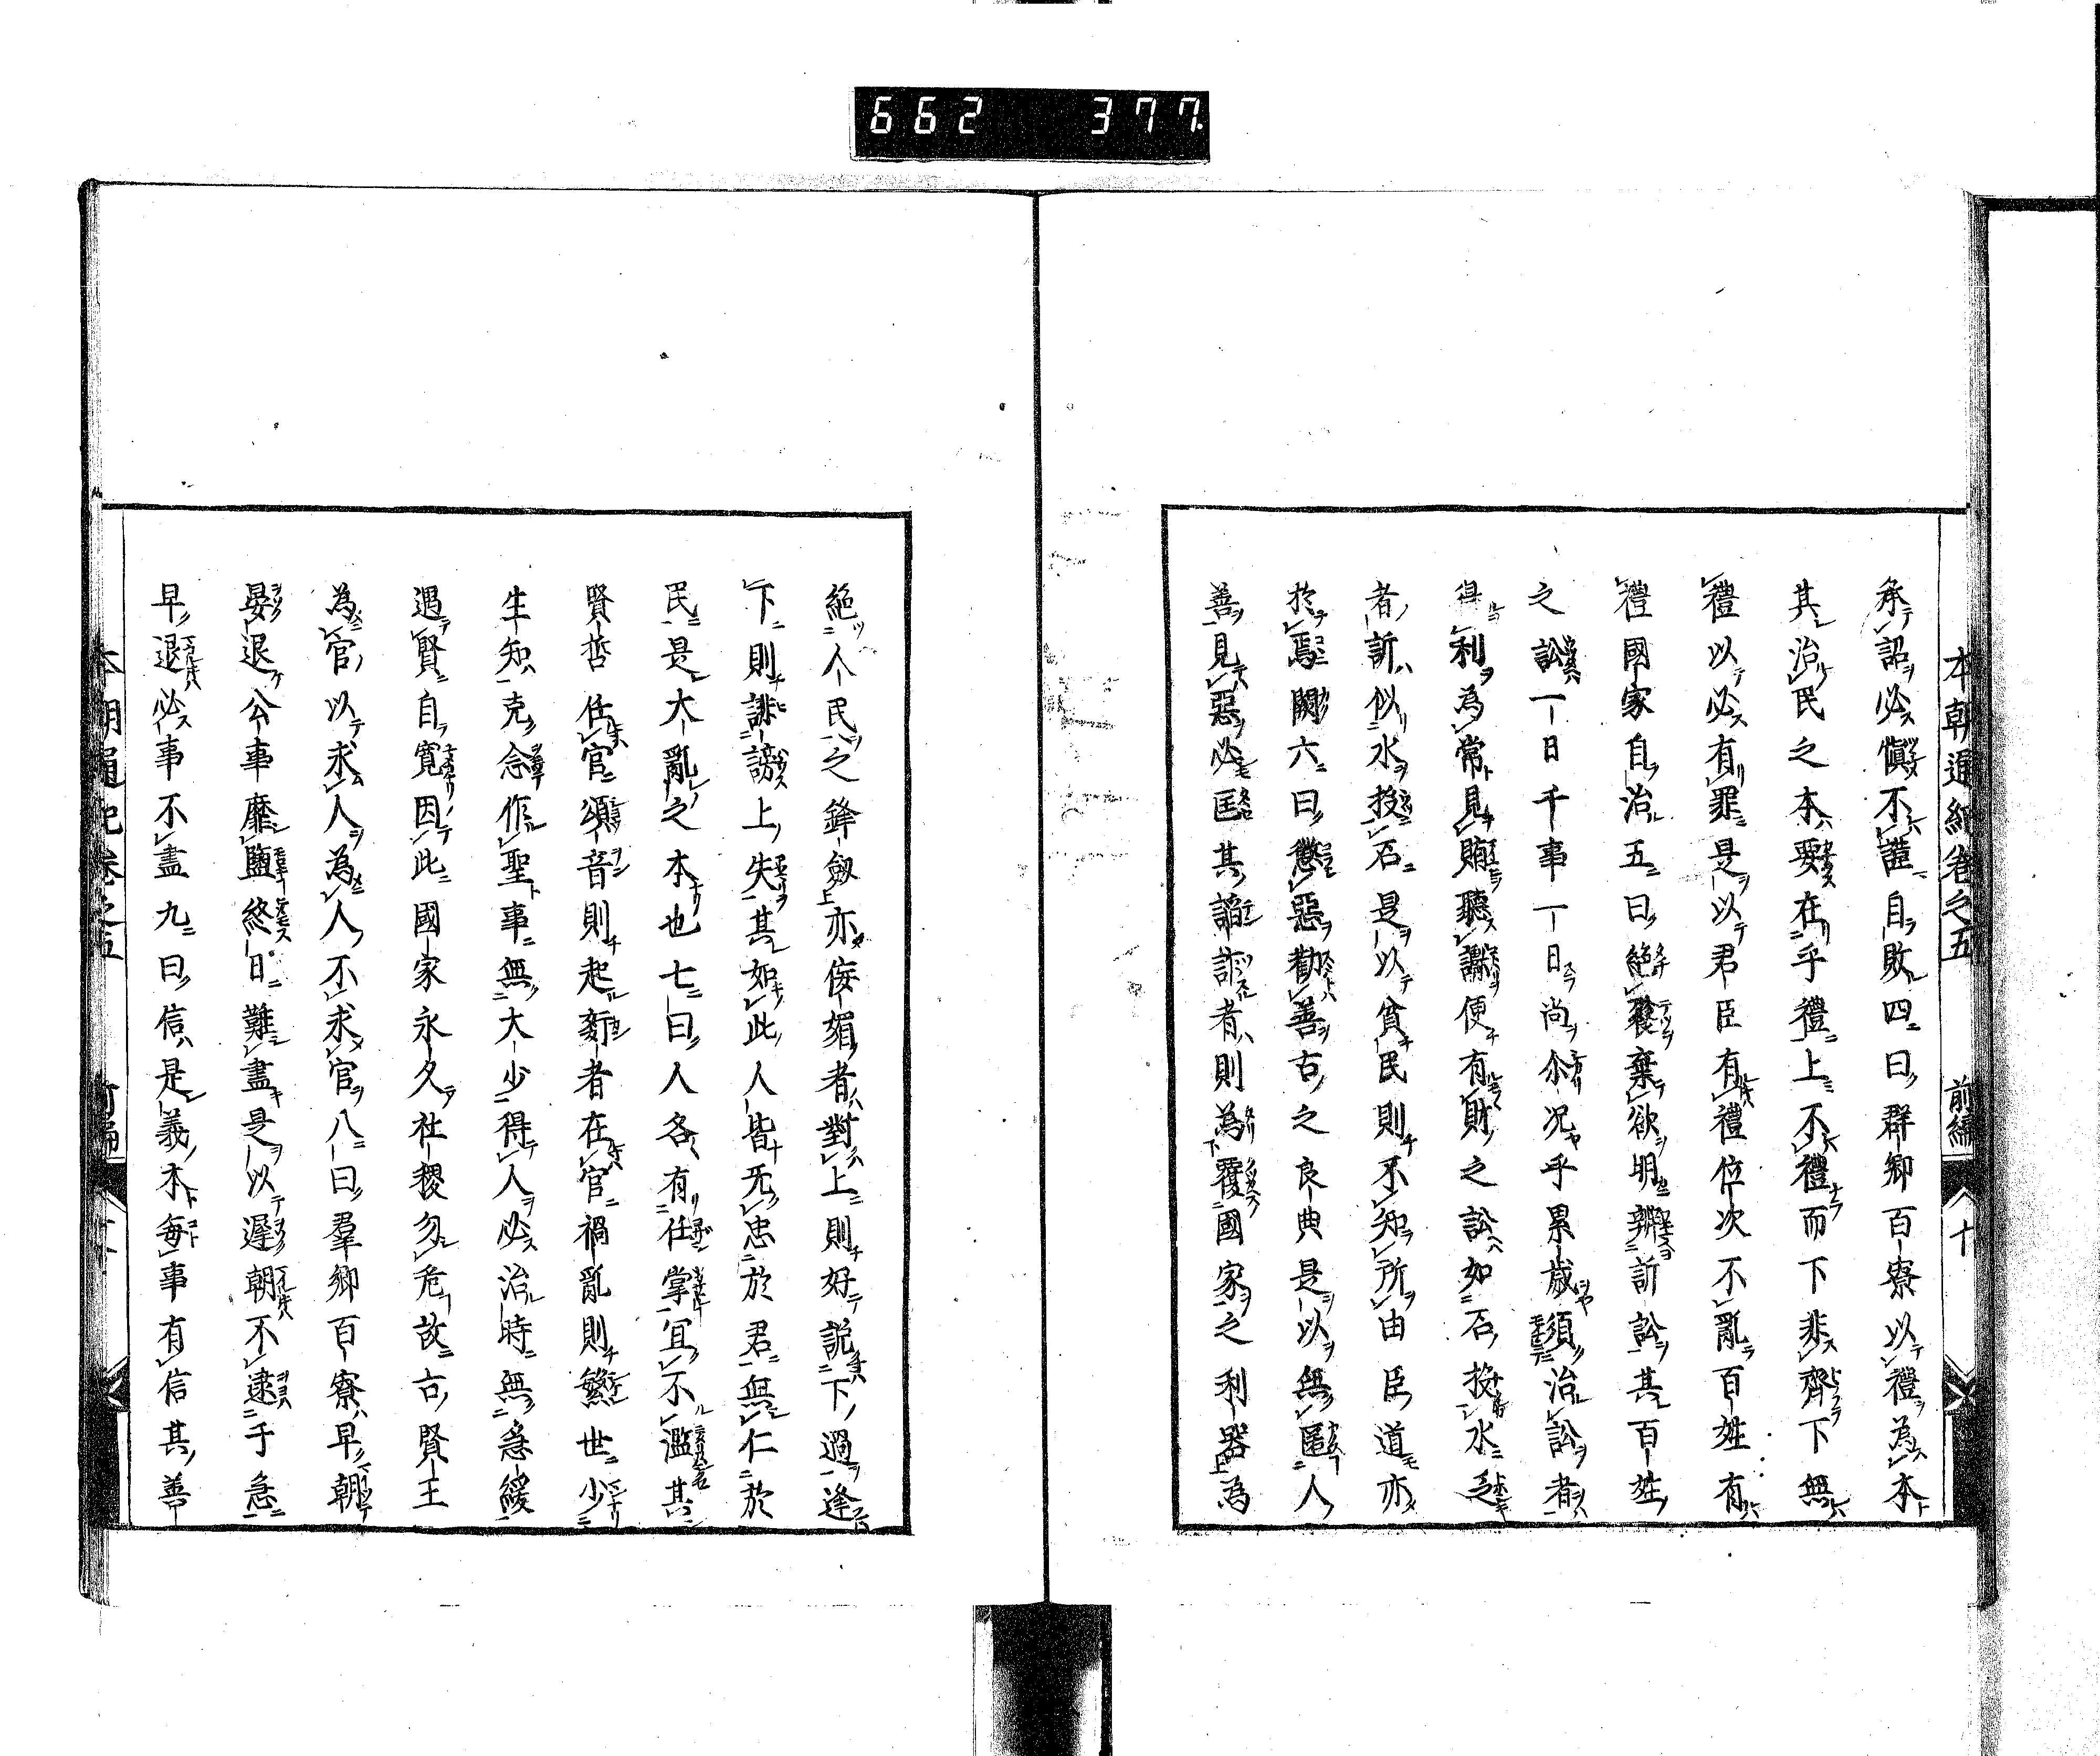 662 377
本朝通紀卷之五 前編 十
承詔必慎不謹自敗四曰群卿百寮以禮為本
其治民之本要在乎禮上不禮而下非齊下無
禮以必有罪是以君臣有禮位次不亂百姓有
禮國家自治五曰絶餮棄欲明辨訴訟其百姓
之訟一日千事一日尚尒況乎累歳須治訟者
得利為常見賄聽讞便有財之訟如石投水乏
者訴似水投石是以貧民則不知所由臣道亦
於焉闕六曰懲惡勸善古之良典是以無匿人
善見惡必匡其諂詐者則為覆國家之利器為
絶人民之鋒劔亦侫媚者對上則好説下過逢
下則誹謗上失其如此人皆无忠於君無仁於
民是大亂之本也七曰人各有任掌宜不濫其
賢哲任官頌音則起姧者在官禍亂則繁世少
生知克念作聖事無大少得人必治時無急緩
遇賢自寛因此國家永久社稷勿危故古賢王
為官以求人為人不求官八曰羣卿百寮早朝
晏退公事靡盬終日難盡是以遲朝不逮于急
早退必事不盡九曰信是義本每事有信其善
本朝通紀卷之五 前編